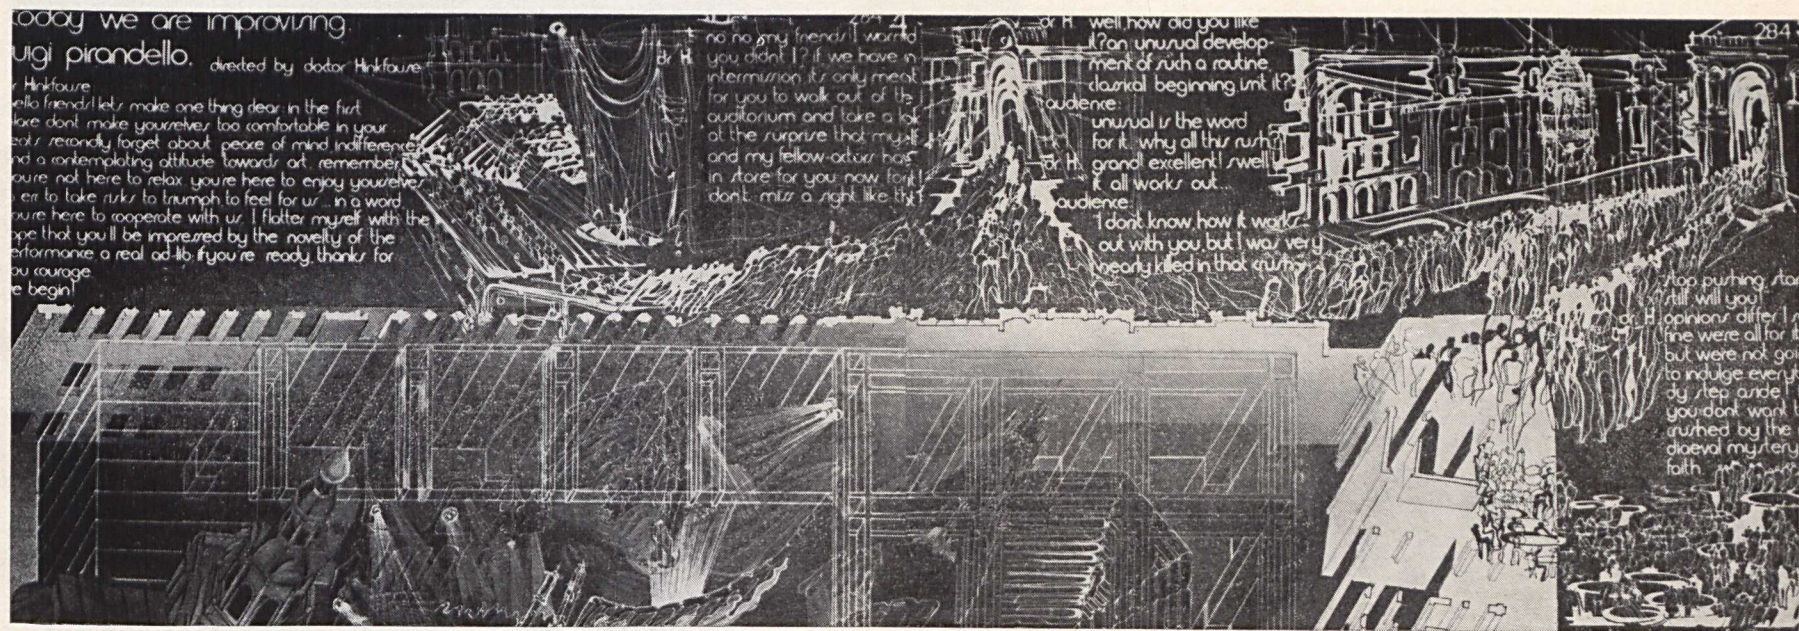 oday we are improvising.
uigi pirandello. directed by doctor Hinkfause
r Hinkfause
ello friends! lets make one thing clear: in the first
lace dont make yourselves too comfortable in your
eats secondly forget about peace of mind indifference
nd a contemplating attitude towards art. remember
oure not here to relax. youre here to enjoy yourselves
err to take risks to triumph to feel for us... in a word
oure here to cooperate with us. I flatter myself with the
ope that you'll be impressed by the novelty of the
erformance a real ad-lib. if you're ready, thanks for
ou courage.
e begin!
284
dr H.
no no my friends I warned
you didnt I? if we have in
intermission its only meat
for you to walk out of the
auditorium and take a look
at the surprise that myself
and my fellow-actors has
in store for you now for it
dont miss a sight like tht
dr H.
well, how did you like
it? an unusual develop-
ment of such a routine
classical beginning isnt it?
audience:
unusual is the word
for it. why all this rush?
dr H.
grand! excellent! swell!
it all works out
audience:
I dont know how it works
out with you, but I was very
nearly killed in that crush
284
stop pushing, stan
still will you!
dr H. opinions differ I s
fine were all for it
but were not goi
to indulge everyb
dy step aside!
you dont want t
crushed by the
diaeval mystery
faith